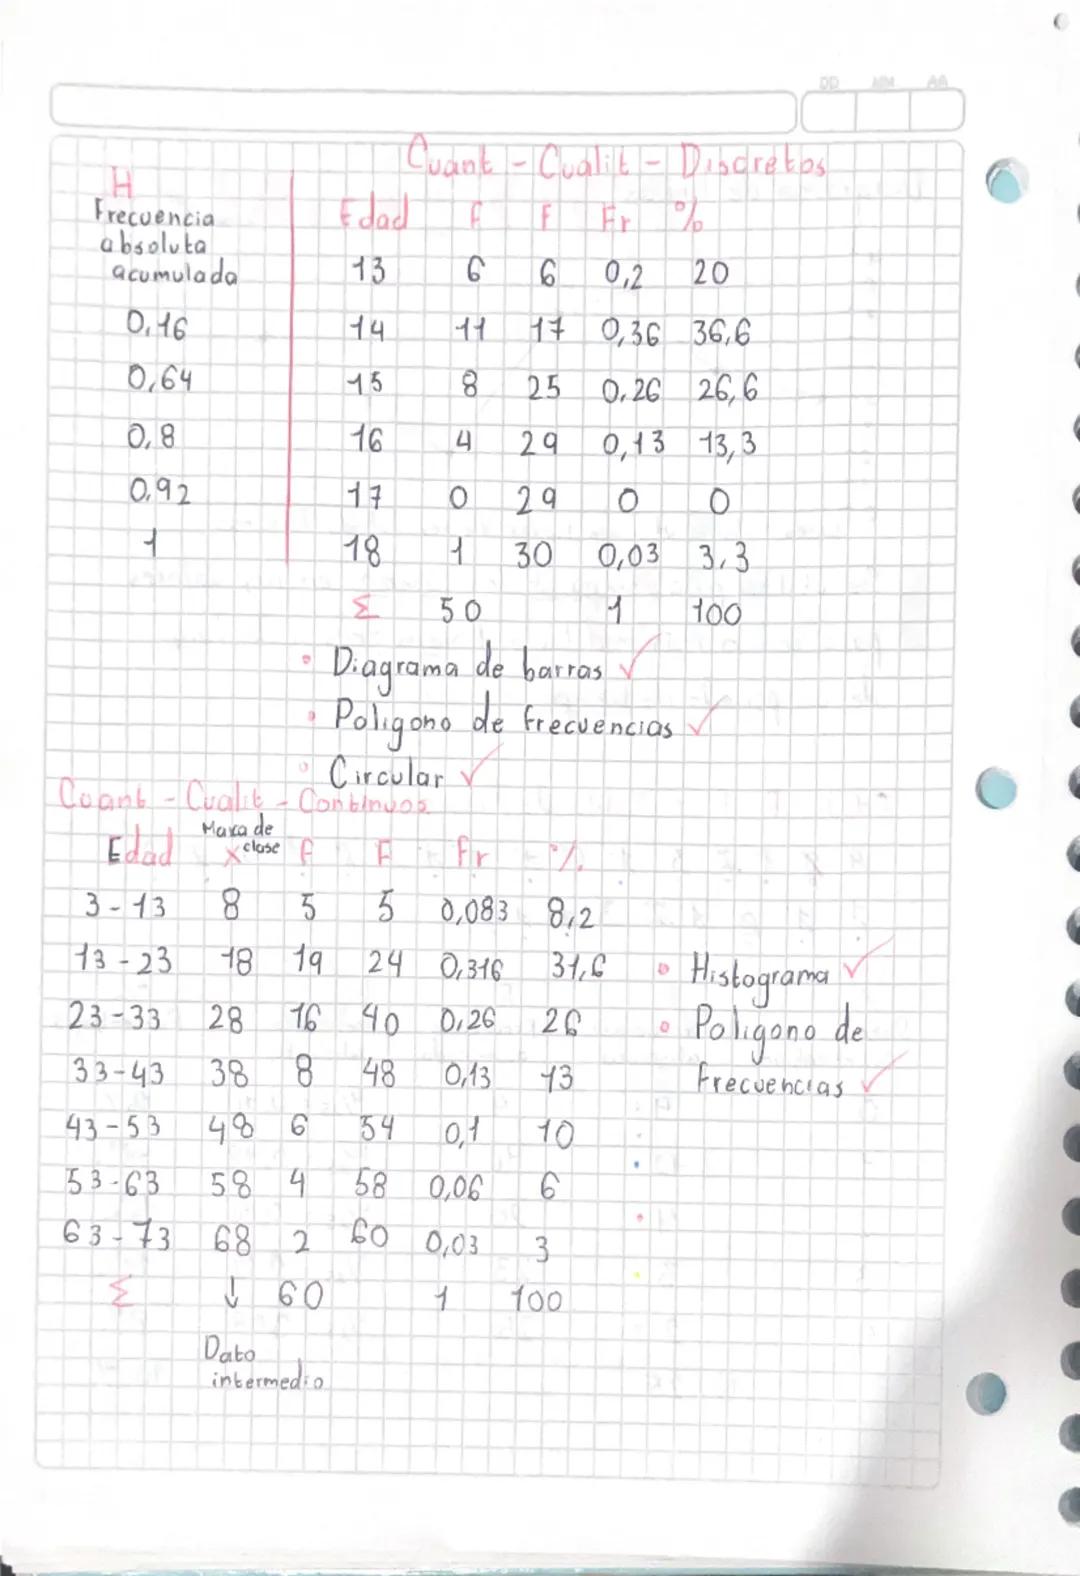 DD MM AA
Cuant - Cualit - Discretos
H
Frecuencia
absoluta
acumulada
0,16
0,64
0,8
0,92
1
Edad f F Fr %
13 6 6 0,2 20
14 11 17 0,36 36,6
15 8 25 0,26 26,6
16 4 29 0,13 13,3
17 0 29 0 0
18 1 30 0,03 3,3
Σ 50 1 100
• Diagrama de barras ✓
• Poligono de frecuencias ✓
• Circular ✓
Cuant - Cualit - Continuos
Edad Marca de clase x f F fr %
3-13 8 5 5 0,083 8,2
13-23 18 19 24 0,316 31,6
23-33 28 16 40 0,26 26
33-43 38 8 48 0,13 13
43-53 48 6 54 0,1 10
53-63 58 4 58 0,06 6
63-73 68 2 60 0,03 3
Σ ↓ 60 1 100
Dato
intermedio
• Histograma ✓
• Poligono de
frecuencias ✓